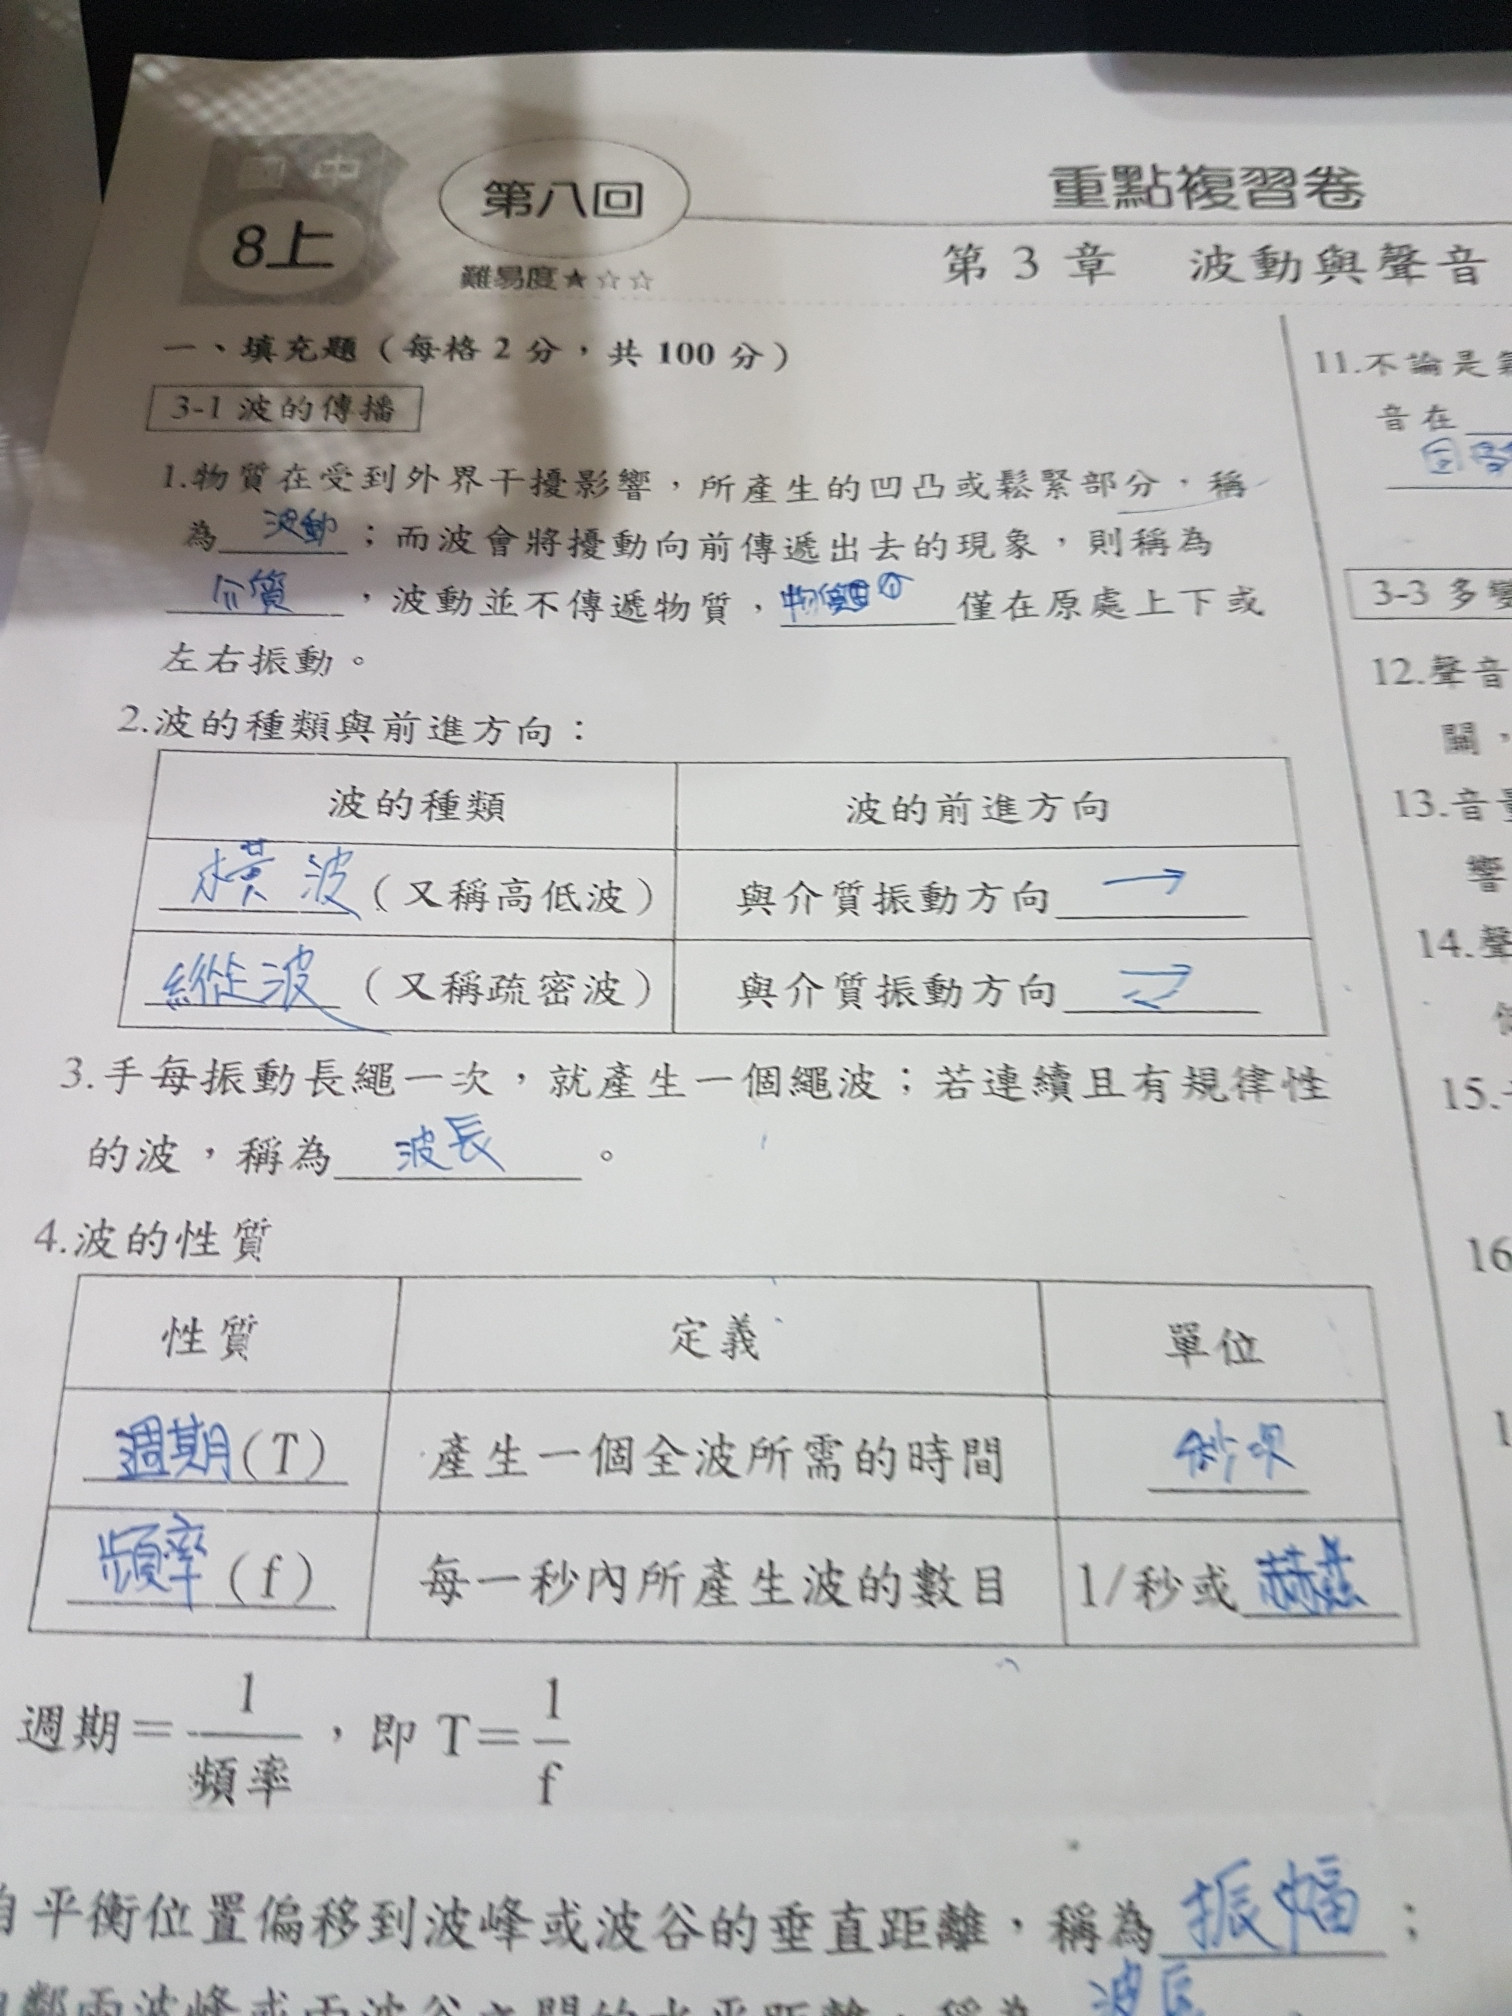 國中
8上
第八回
難易度★☆☆
重點複習卷
第3章 波動與聲音
一、填充題(每格2分,共100分)
3-1 波的傳播
1.物質在受到外界干擾影響,所產生的凹凸或鬆緊部分,稱
為波動;而波會將擾動向前傳遞出去的現象,則稱為
介質,波動並不傳遞物質,僅在原處上下或
左右振動。
2.波的種類與前進方向:
波的種類 波的前進方向
橫波(又稱高低波) 與介質振動方向→
縱波(又稱疏密波) 與介質振動方向
3.手每振動長繩一次,就產生一個繩波;若連續且有規律性
的波,稱為波長。
4.波的性質
性質 定義 單位
週期(T) 產生一個全波所需的時間
頻率(f) 每一秒內所產生波的數目 1/秒或赫茲
週期=1/頻率,即 T=1/f
平衡位置偏移到波峰或波谷的垂直距離,稱為振幅;
鄰兩波峰或兩波谷之間的水平距離,稱為波長
11.不論是
音在
3-3 多變
12.聲音
關,
13.音量
響
14.聲
15.
16